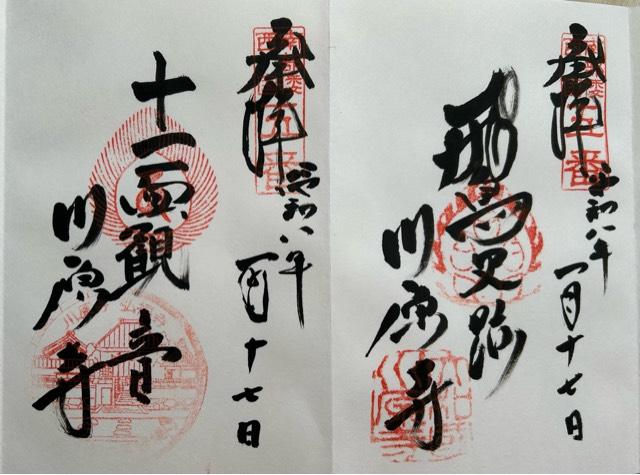 奉拝
令和八年
一月十七日
飛鳥史跡
川原寺
奉拝
令和八年
一月十七日
十一面観音
川原寺